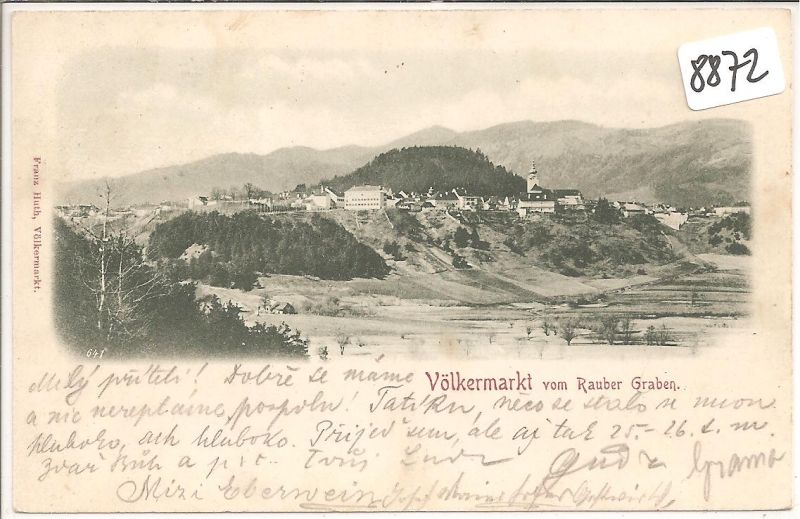 8872
Franz Huth, Völkermarkt.
641
Völkermarkt vom Rauber Graben.
Milý příteli! Dobře se máme
a nic nereptáme pospolu! Tatíku, něco se stalo se mnou
hluboko, ach hluboko. Přijeď sem, ale aj tak 25.-26. t. m.
Zvař Bůh a piš. Tvůj
Mizi Eberwein Josef